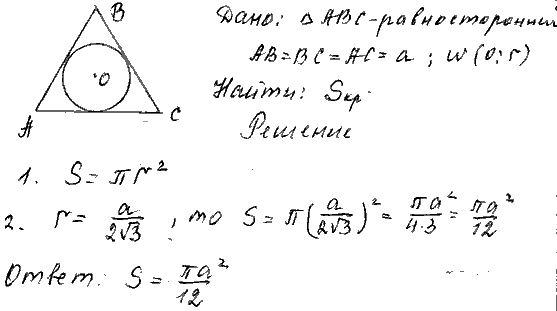 B
O
A
C
Дано: △ABC-равносторонний
AB=BC=AC=a; w(0;r)
Найти: Sкр.
Решение
1. S=πr²
2. r= a/2√3, то S=π(a/2√3)²= πa²/4·3= πa²/12
Ответ: S= πa²/12